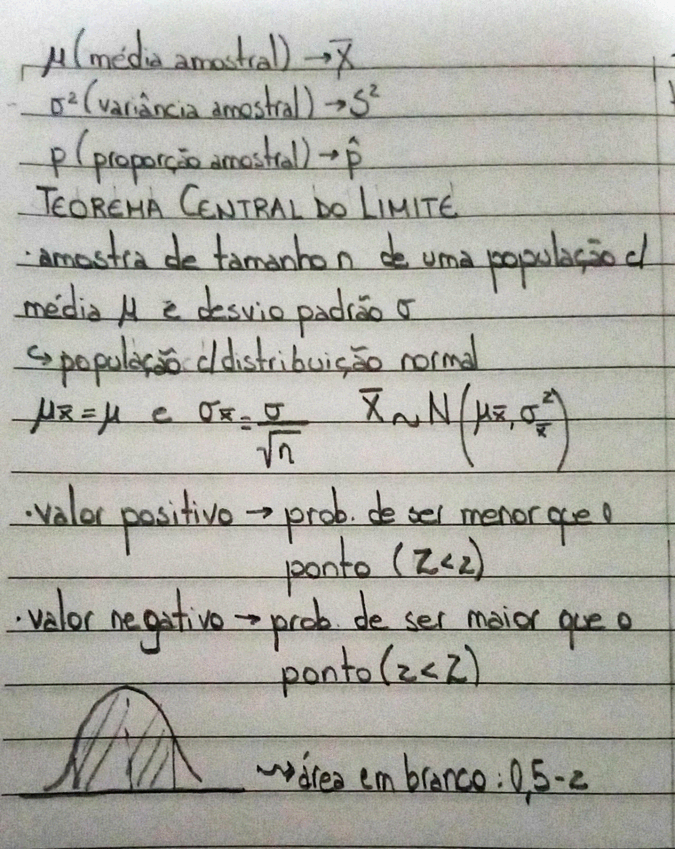 μ(média amostral) → x̄
σ² (variância amostral) → S²
p (proporção amostral) → p̂
TEOREMA CENTRAL DO LIMITE
· amostra de tamanho n de uma população c/
média μ e desvio padrão σ
↪ população c/ distribuição normal
μx̄ = μ e σx̄ = σ/√n X̄ ~ N(μx̄, σ²x̄)
· valor positivo → prob. de ser menor que o
ponto (Z < z)
· valor negativo → prob. de ser maior que o
ponto (z < Z)
↝ área em branco : 0,5 - z